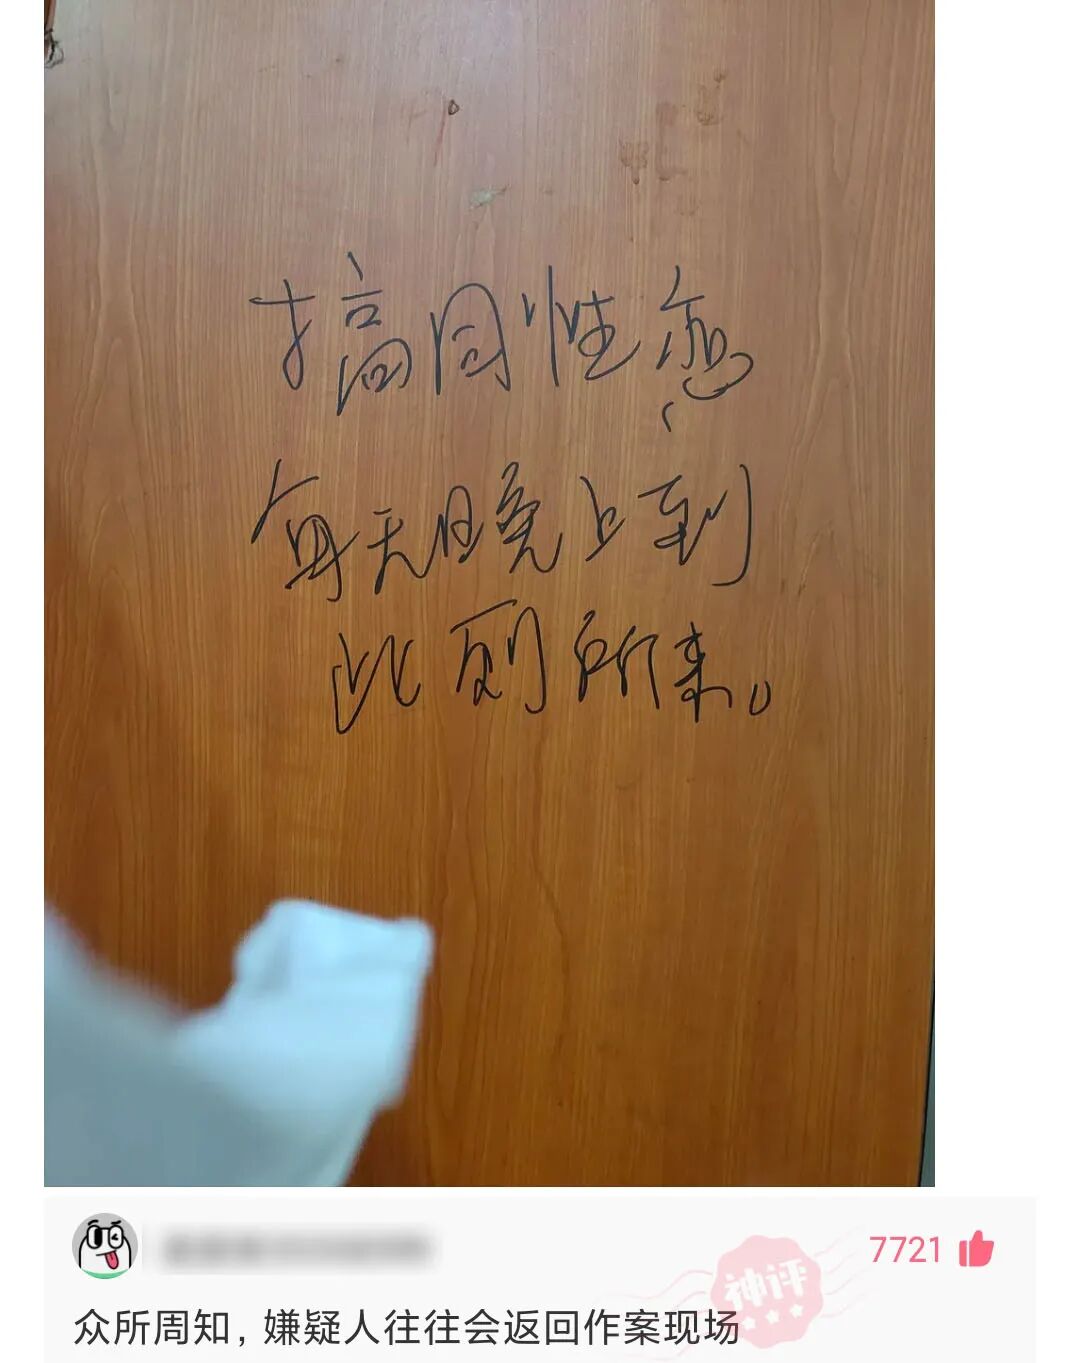 搞同性恋
每天晚上到
此厕所来。
7721
神评
众所周知，嫌疑人往往会返回作案现场